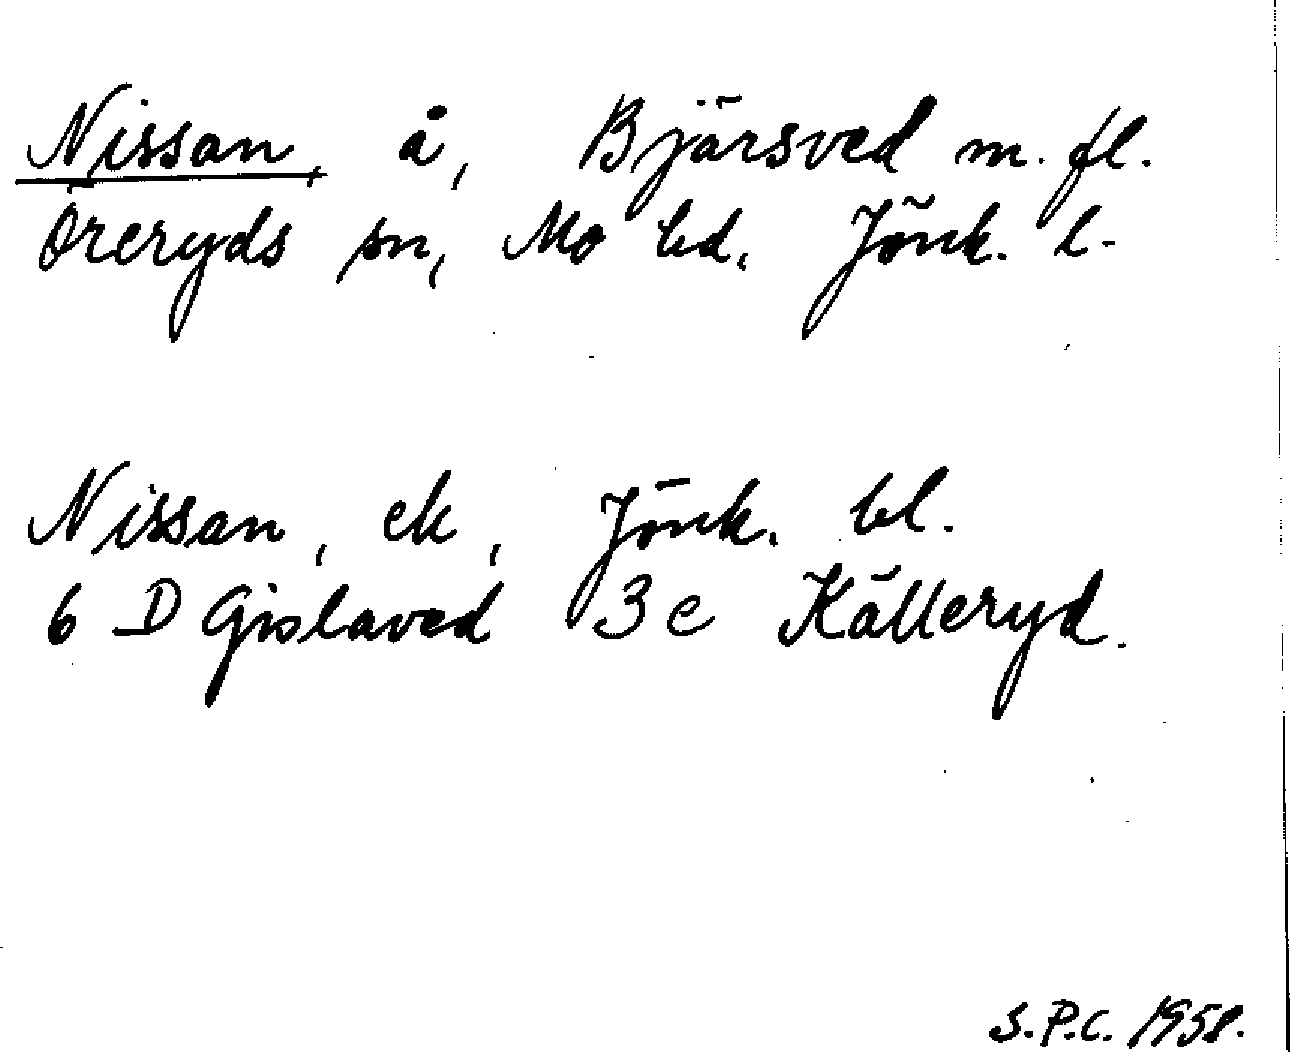 Nissan, å, Bjärsved m. fl.
Öreryds sn, Mo hd. Jönk. l.
Nissan, ek, Jönk. bl.
6 D Gislaved 3 e Källeryd.
S.P.C. 1958.